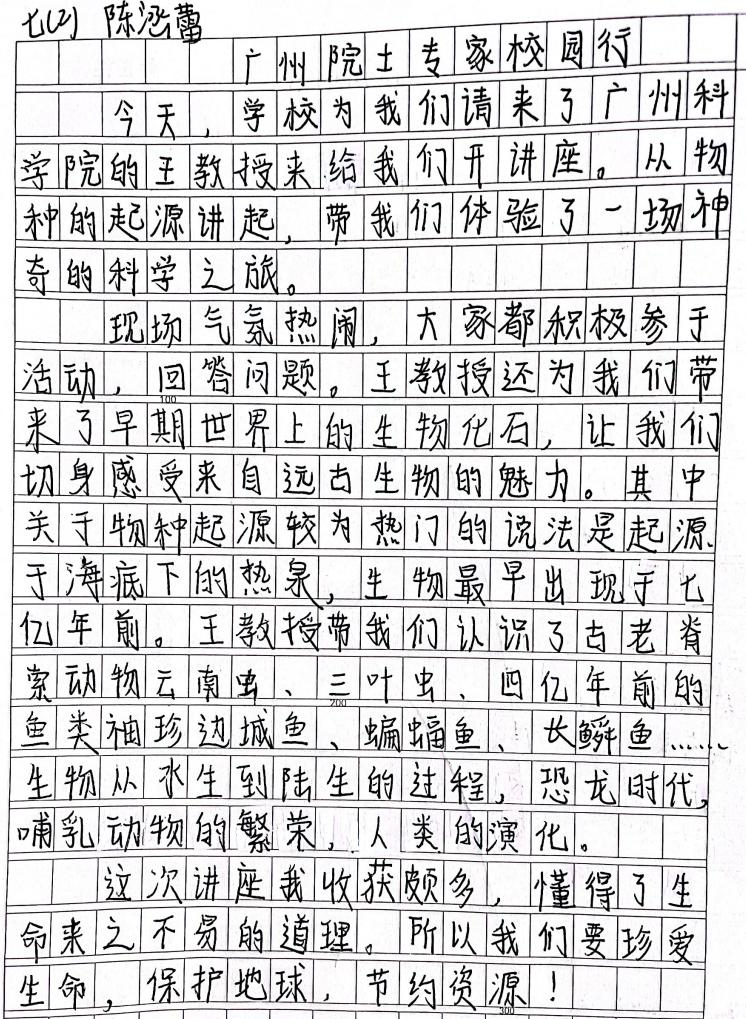 七(2) 陈泓蕾
广州院士专家校园行
今天，学校为我们请来了广州科
学院的王教授来给我们开讲座。从物
种的起源讲起，带我们体验了一场神
奇的科学之旅。
现场气氛热闹，大家都积极参于
活动，回答问题。王教授还为我们带
100
来了早期世界上的生物化石，让我们
切身感受来自远古生物的魅力。其中
关于物种起源较为热门的说法是起源
于海底下的热泉，生物最早出现于七
亿年前。王教授带我们认识了古老脊
索动物云南虫、三叶虫、四亿年前的
200
鱼类袖珍边城鱼、蝙蝠鱼、长鳞鱼……
生物从水生到陆生的过程，恐龙时代，
哺乳动物的繁荣，人类的演化。
这次讲座我收获颇多，懂得了生
命来之不易的道理。所以我们要珍爱
生命，保护地球，节约资源！
300